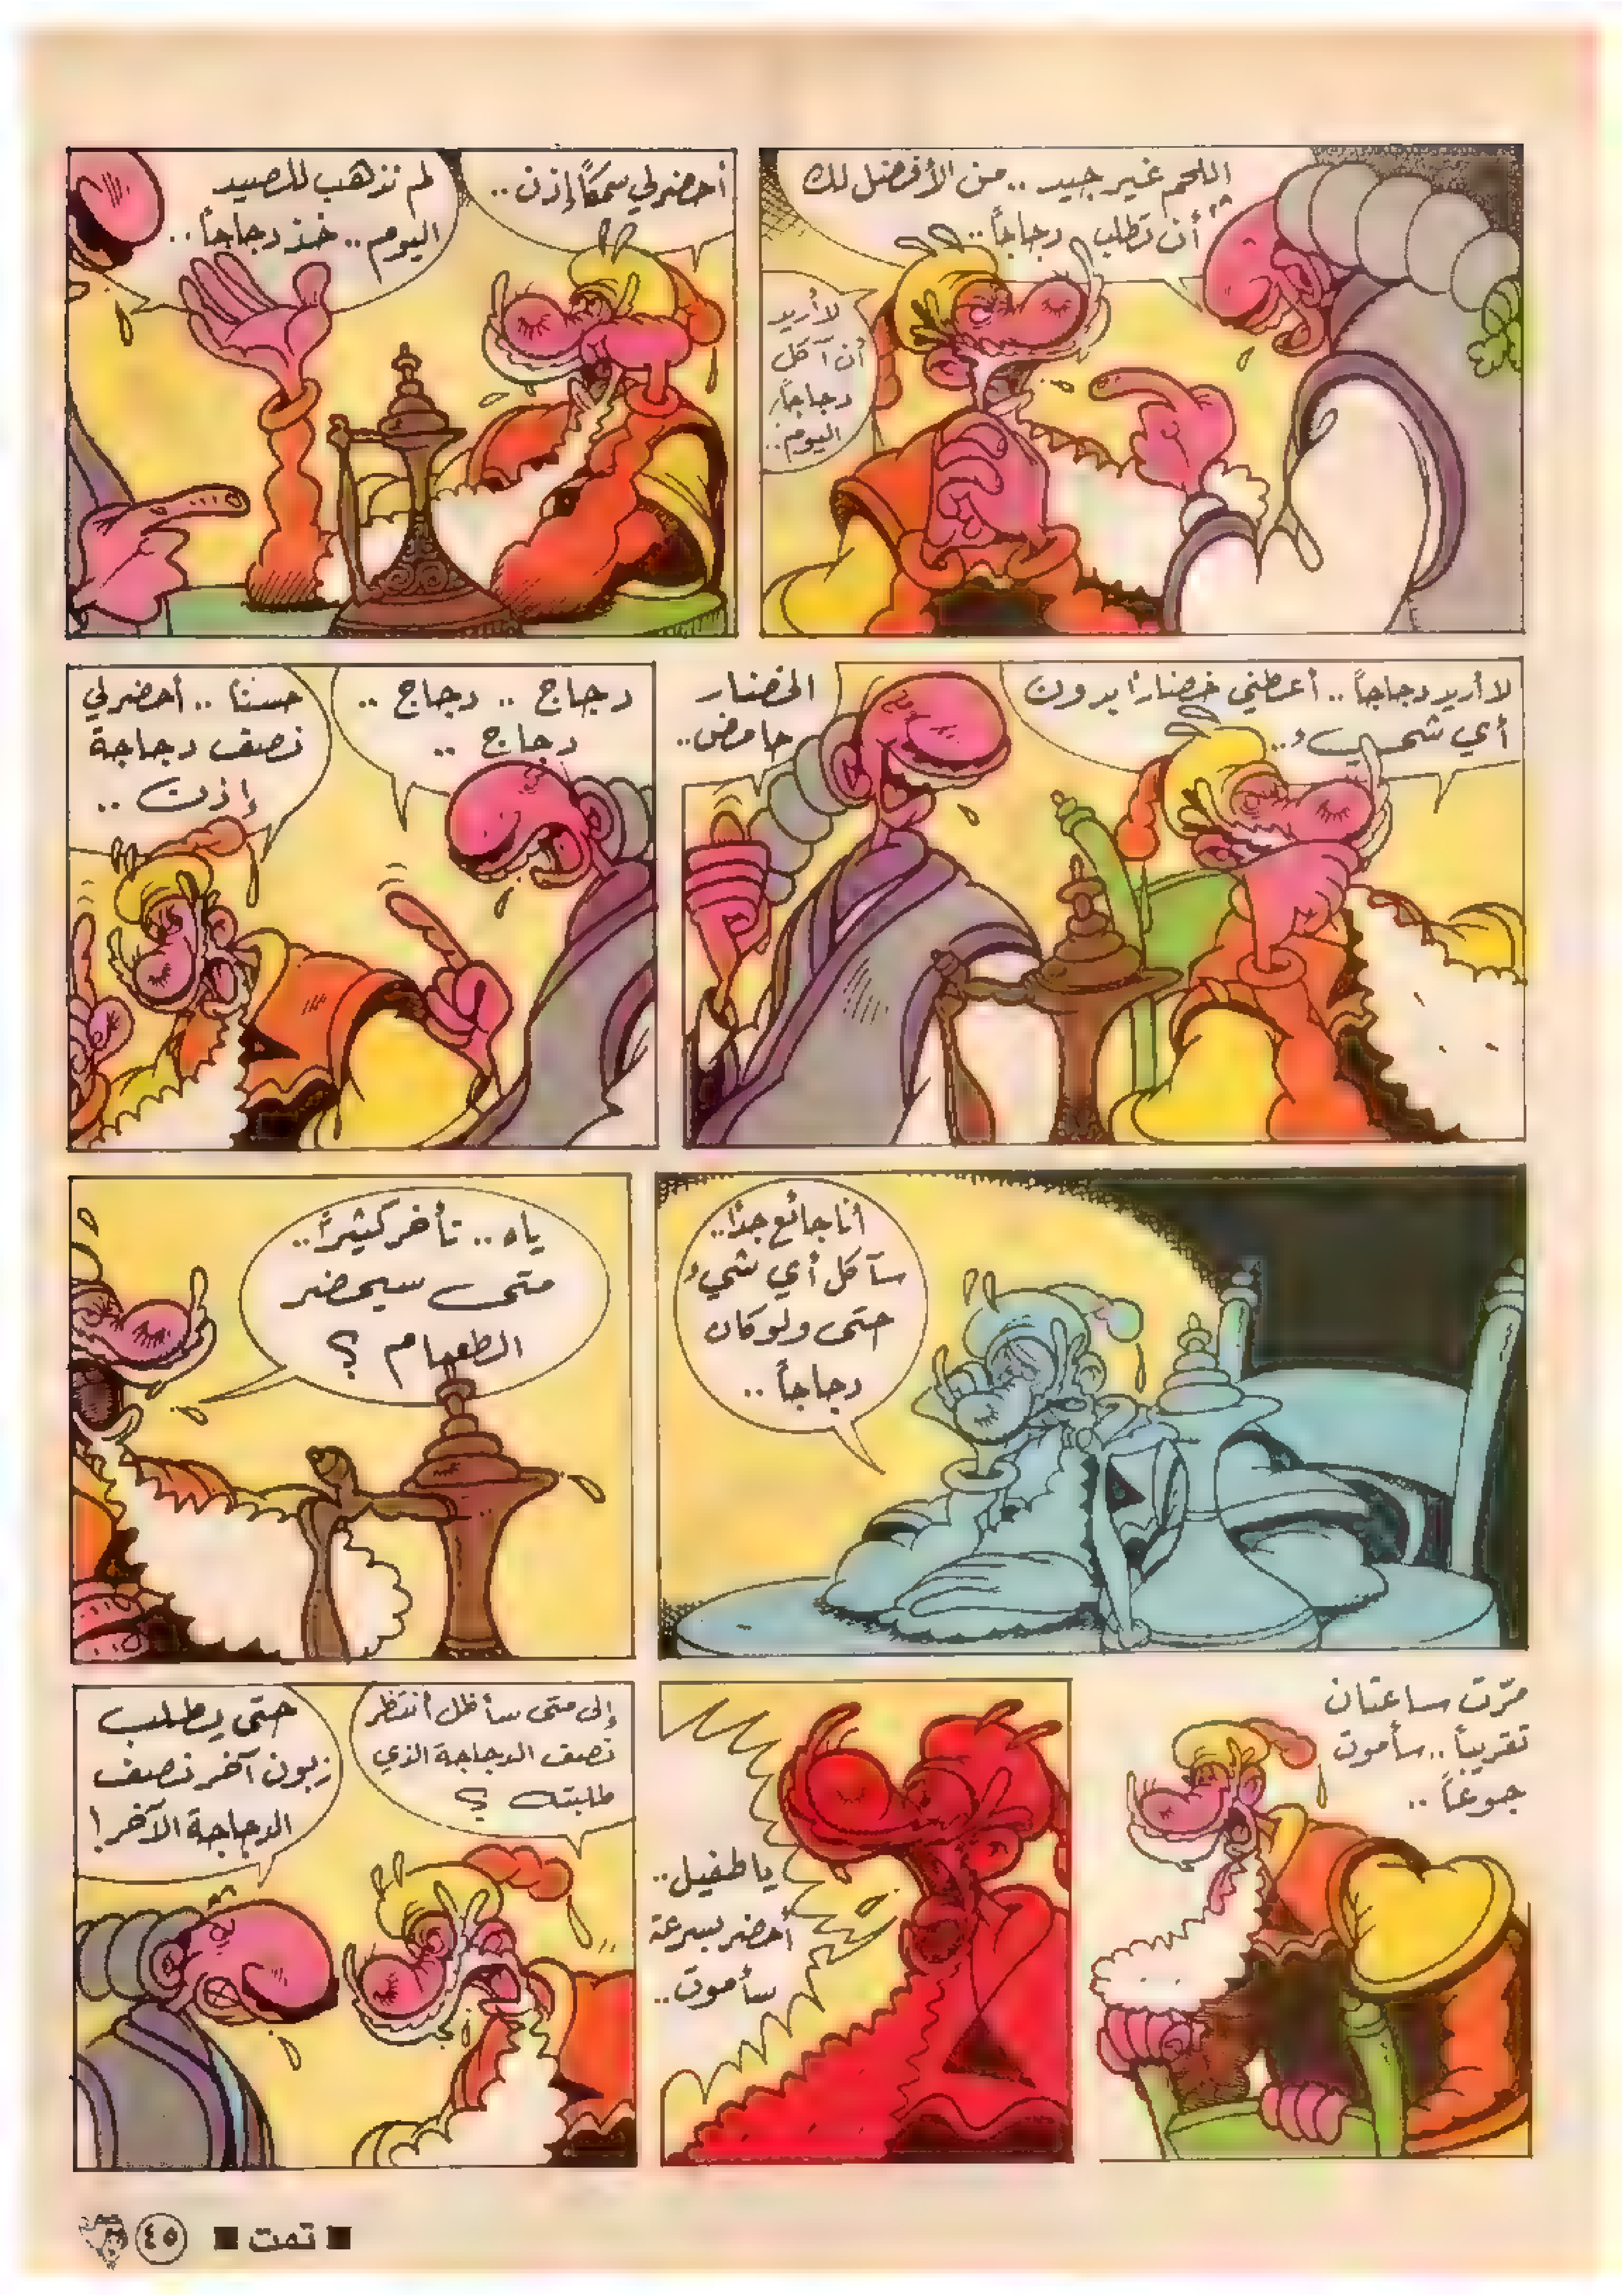 اللحم غير جيد .. من الأفضل لك
أن تطلب دجاجاً ..
لا أريد
أن آكل
دجاجاً
اليوم ..
أحضر لي سمكاً إذن ..
لم نذهب للصيد
اليوم .. خذ دجاجاً ..
لا أريد دجاجاً .. أعطني خضاراً بدون
أي شيء ..
الخضار
حامض ..
دجاج .. دجاج ..
دجاج ..
حسناً .. أحضر لي
نصف دجاجة
إذن ..
أنا جائع جدًا ..
سآكل أي شيء
حتى ولو كان
دجاجاً ..
ياه .. تأخر كثيراً ..
متى سيحضر
الطعام ؟
مرّت ساعتان
تقريباً .. سأموت
جوعاً ..
يا طفيل ..
أحضر بسرعة
سأموت ..
إلى متى سأظل أنتظر
نصف الدجاجة الذي
طلبته ؟
حتى يطلب
زبون آخر نصف
الدجاجة الآخر !
■ تمت ■ ٤٥